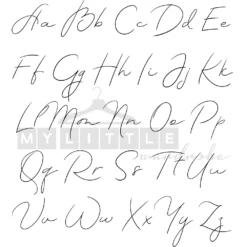 Aa Bb Cc Dd Ee
Ff Gg Hh Ii Jj Kk
Ll Mm Nn Oo Pp
MY LITTLE
Qq Rr Ss Tt Uu
Vv Ww Xx Yy Zz